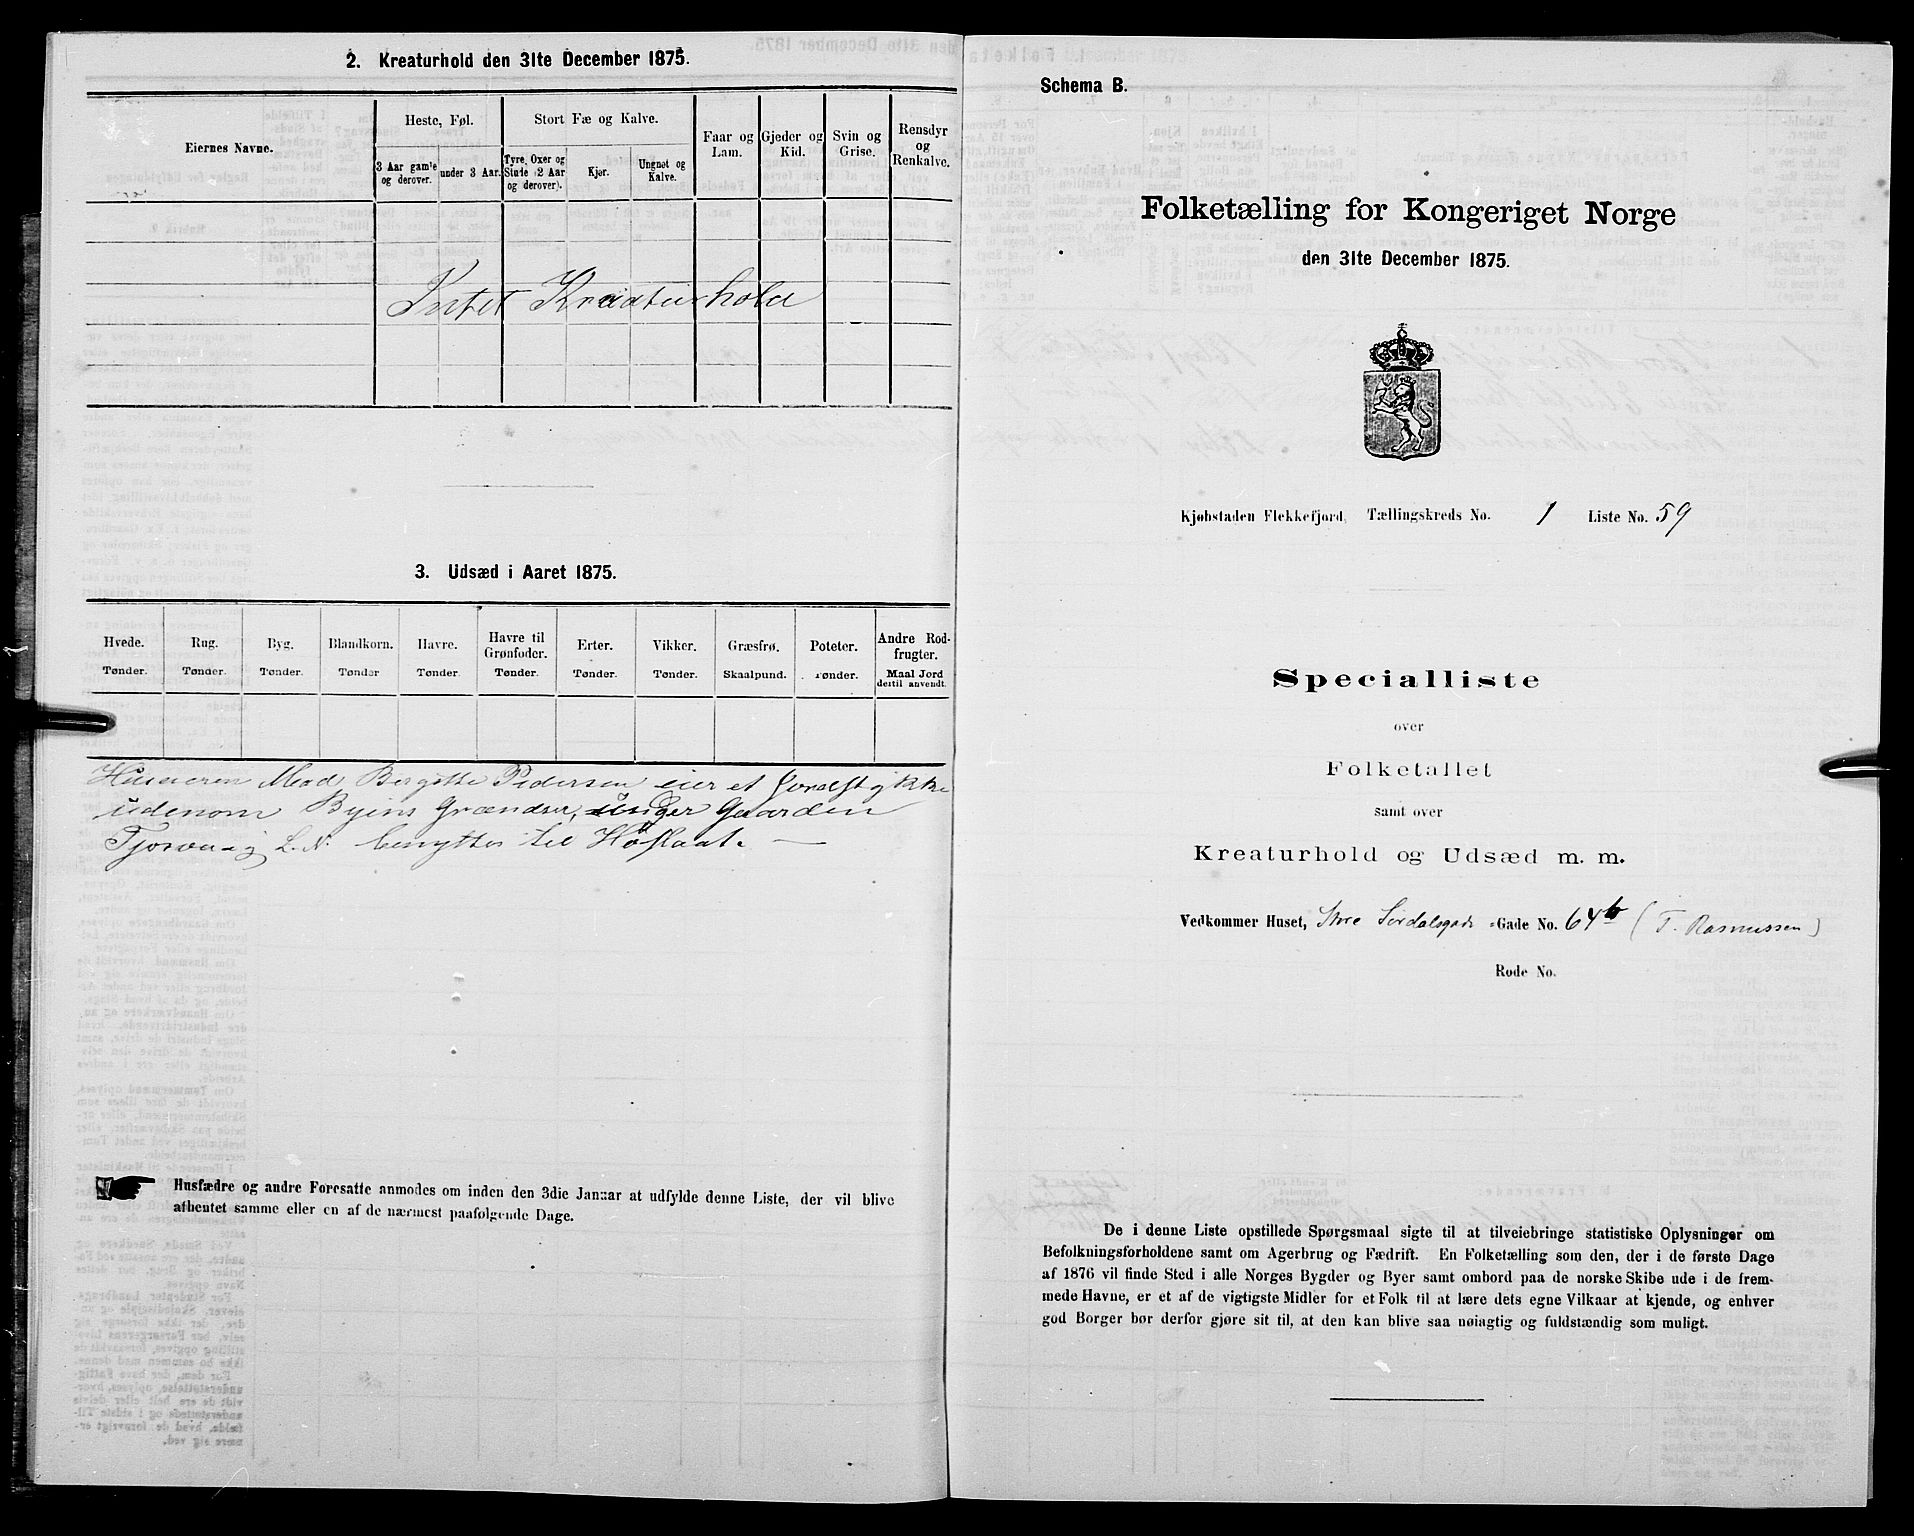 2. Kreaturhold den 31te December 1875.
Eiernes Navne.
Heste, Føl.
Stort Fæ og Kalve.
Faar og
Lam.
Gjeder og
Kid.
Svin og
Grise.
Rensdyr
og
Renkalve.
3 Aar gamle
og derover.
under 3 Aar.
Tyre, Oxer og
Stude (2 Aar
og derover).
Kjør.
Ungnøt og
Kalve.
Intet Kreaturhold
3. Udsæd i Aaret 1875.
Hvede.
Tønder.
Rug.
Tønder.
Byg.
Tønder.
Blandkorn.
Tønder
Havre.
Tønder.
Havre til
Grønfoder.
Tønder.
Erter.
Tønder.
Vikker.
Tønder.
Græsfrø.
Skaalpund.
Poteter.
Tønder.
Andre Rod-
frugter.
Maal Jord
dertil anvendt.
Madm Bergitte Pedersen eier et Jordstykke
udenom Byens Grændser, under Gaarden
L.N. benyttes til Høslaat.
Husfædre og andre Foresatte anmodes om inden den 3die Januar at udfylde denne Liste, der vil blive
afhentet samme eller en af de nærmest paafølgende Dage.
Schema B.
Folketælling for Kongeriget Norge
den 31te December 1875.
Kjøbstaden Flekkefjord, Tællingskreds No. 1 Liste No. 59
Specialliste
over
Folketallet
samt over
Kreaturhold og Udsæd m. m.
Vedkommer Huset, Store Sirdalsgade -Gade No. 64b (T. Rasmussen)
Rode No.
De i denne Liste opstillede Spørgsmaal sigte til at tilveiebringe statistiske Oplysninger om
Befolkningsforholdene samt om Agerbrug og Fædrift. En Folketælling som den, der i de første Dage
af 1876 vil finde Sted i alle Norges Bygder og Byer samt ombord paa de norske Skibe ude i de frem-
mede Havne, er et af de vigtigste Midler for et Folk til at lære dets egne Vilkaar at kjende, og enhver
god Borger bør derfor gjøre sit til, at den kan blive saa nøiagtig og fuldstændig som muligt.